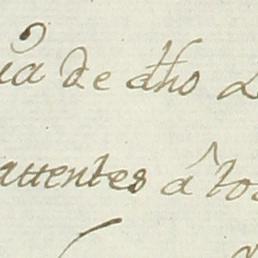 ia de dho
attentes â to